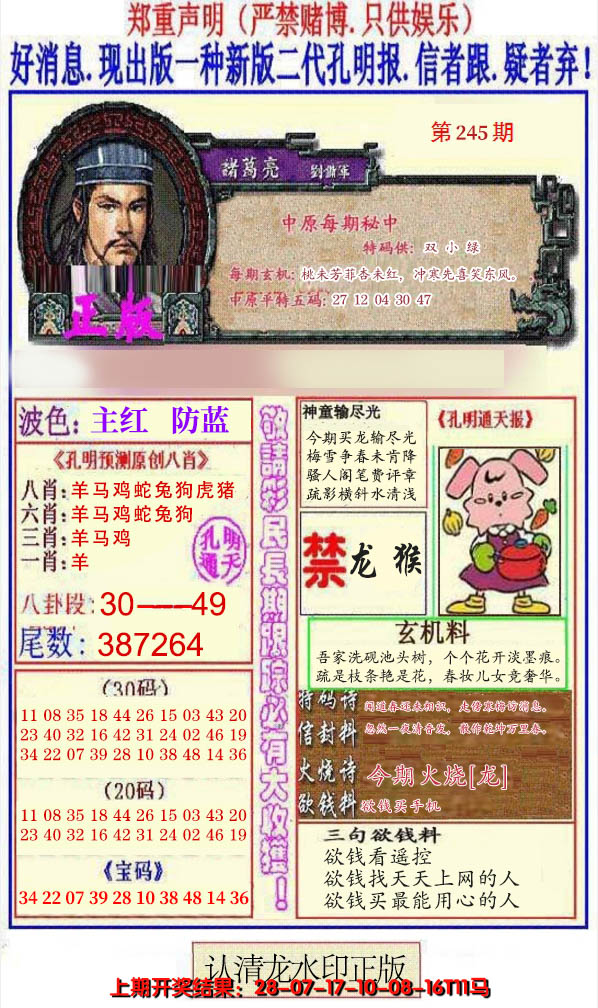 郑重声明（严禁赌博.只供娱乐）
好消息.现出版一种新版二代孔明报.信者跟.疑者弃！
第245期
諸葛亮 劉備軍
中原每期秘中
特码供：双 小 绿
每期玄机：桃未芳菲杏未红，冲寒先喜笑东风。
中原平特五码：27 12 04 30 47
正版
波色：主红 防蓝
《孔明预测原创八肖》
八肖：羊马鸡蛇兔狗虎猪
六肖：羊马鸡蛇兔狗
三肖：羊马鸡
一肖：羊
孔明
通天
八卦段：30——49
尾数：387264
（30码）
11 08 35 18 44 26 15 03 43 20
23 40 32 16 42 31 24 02 46 19
34 22 07 39 28 10 38 48 14 36
（20码）
11 08 35 18 44 26 15 03 43 20
23 40 32 16 42 31 24 02 46 19
《宝码》
34 22 07 39 28 10 38 48 14 36
敬請彩民長期跟踪必有大收獲！
神童输尽光
今期买龙输尽光
梅雪争春未肯降
骚人阁笔费评章
疏影横斜水清浅
《孔明通天报》
禁 龙 猴
玄机料
吾家洗砚池头树，个个花开淡墨痕。
疏是枝条艳是花，春妆儿女竞奢华。
特码诗 闻道春还未相识，走傍寒梅访消息。
信封料 忽然一夜清香发，散作乾坤万里春。
火烧诗 今期火烧[龙]
欲钱料 欲钱买手机
三句欲钱料
欲钱看遥控
欲钱找天天上网的人
欲钱买最能用心的人
认清龙水印正版
上期开奖结果：28-07-17-10-08-16T11马